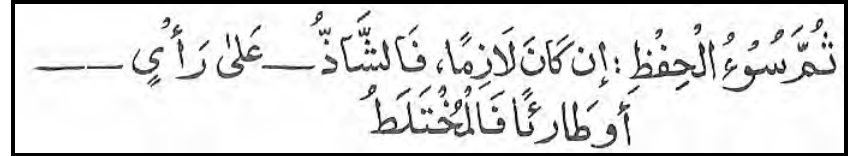 ثُمَّ سُوْءُ الْحِفْظِ : إن كَانَ لَازِمًا، فَالشَّاذُّ — عَلىٰ رَأْيٍ —
أو طَارِئًا فَالْمُخْتَلَطُ